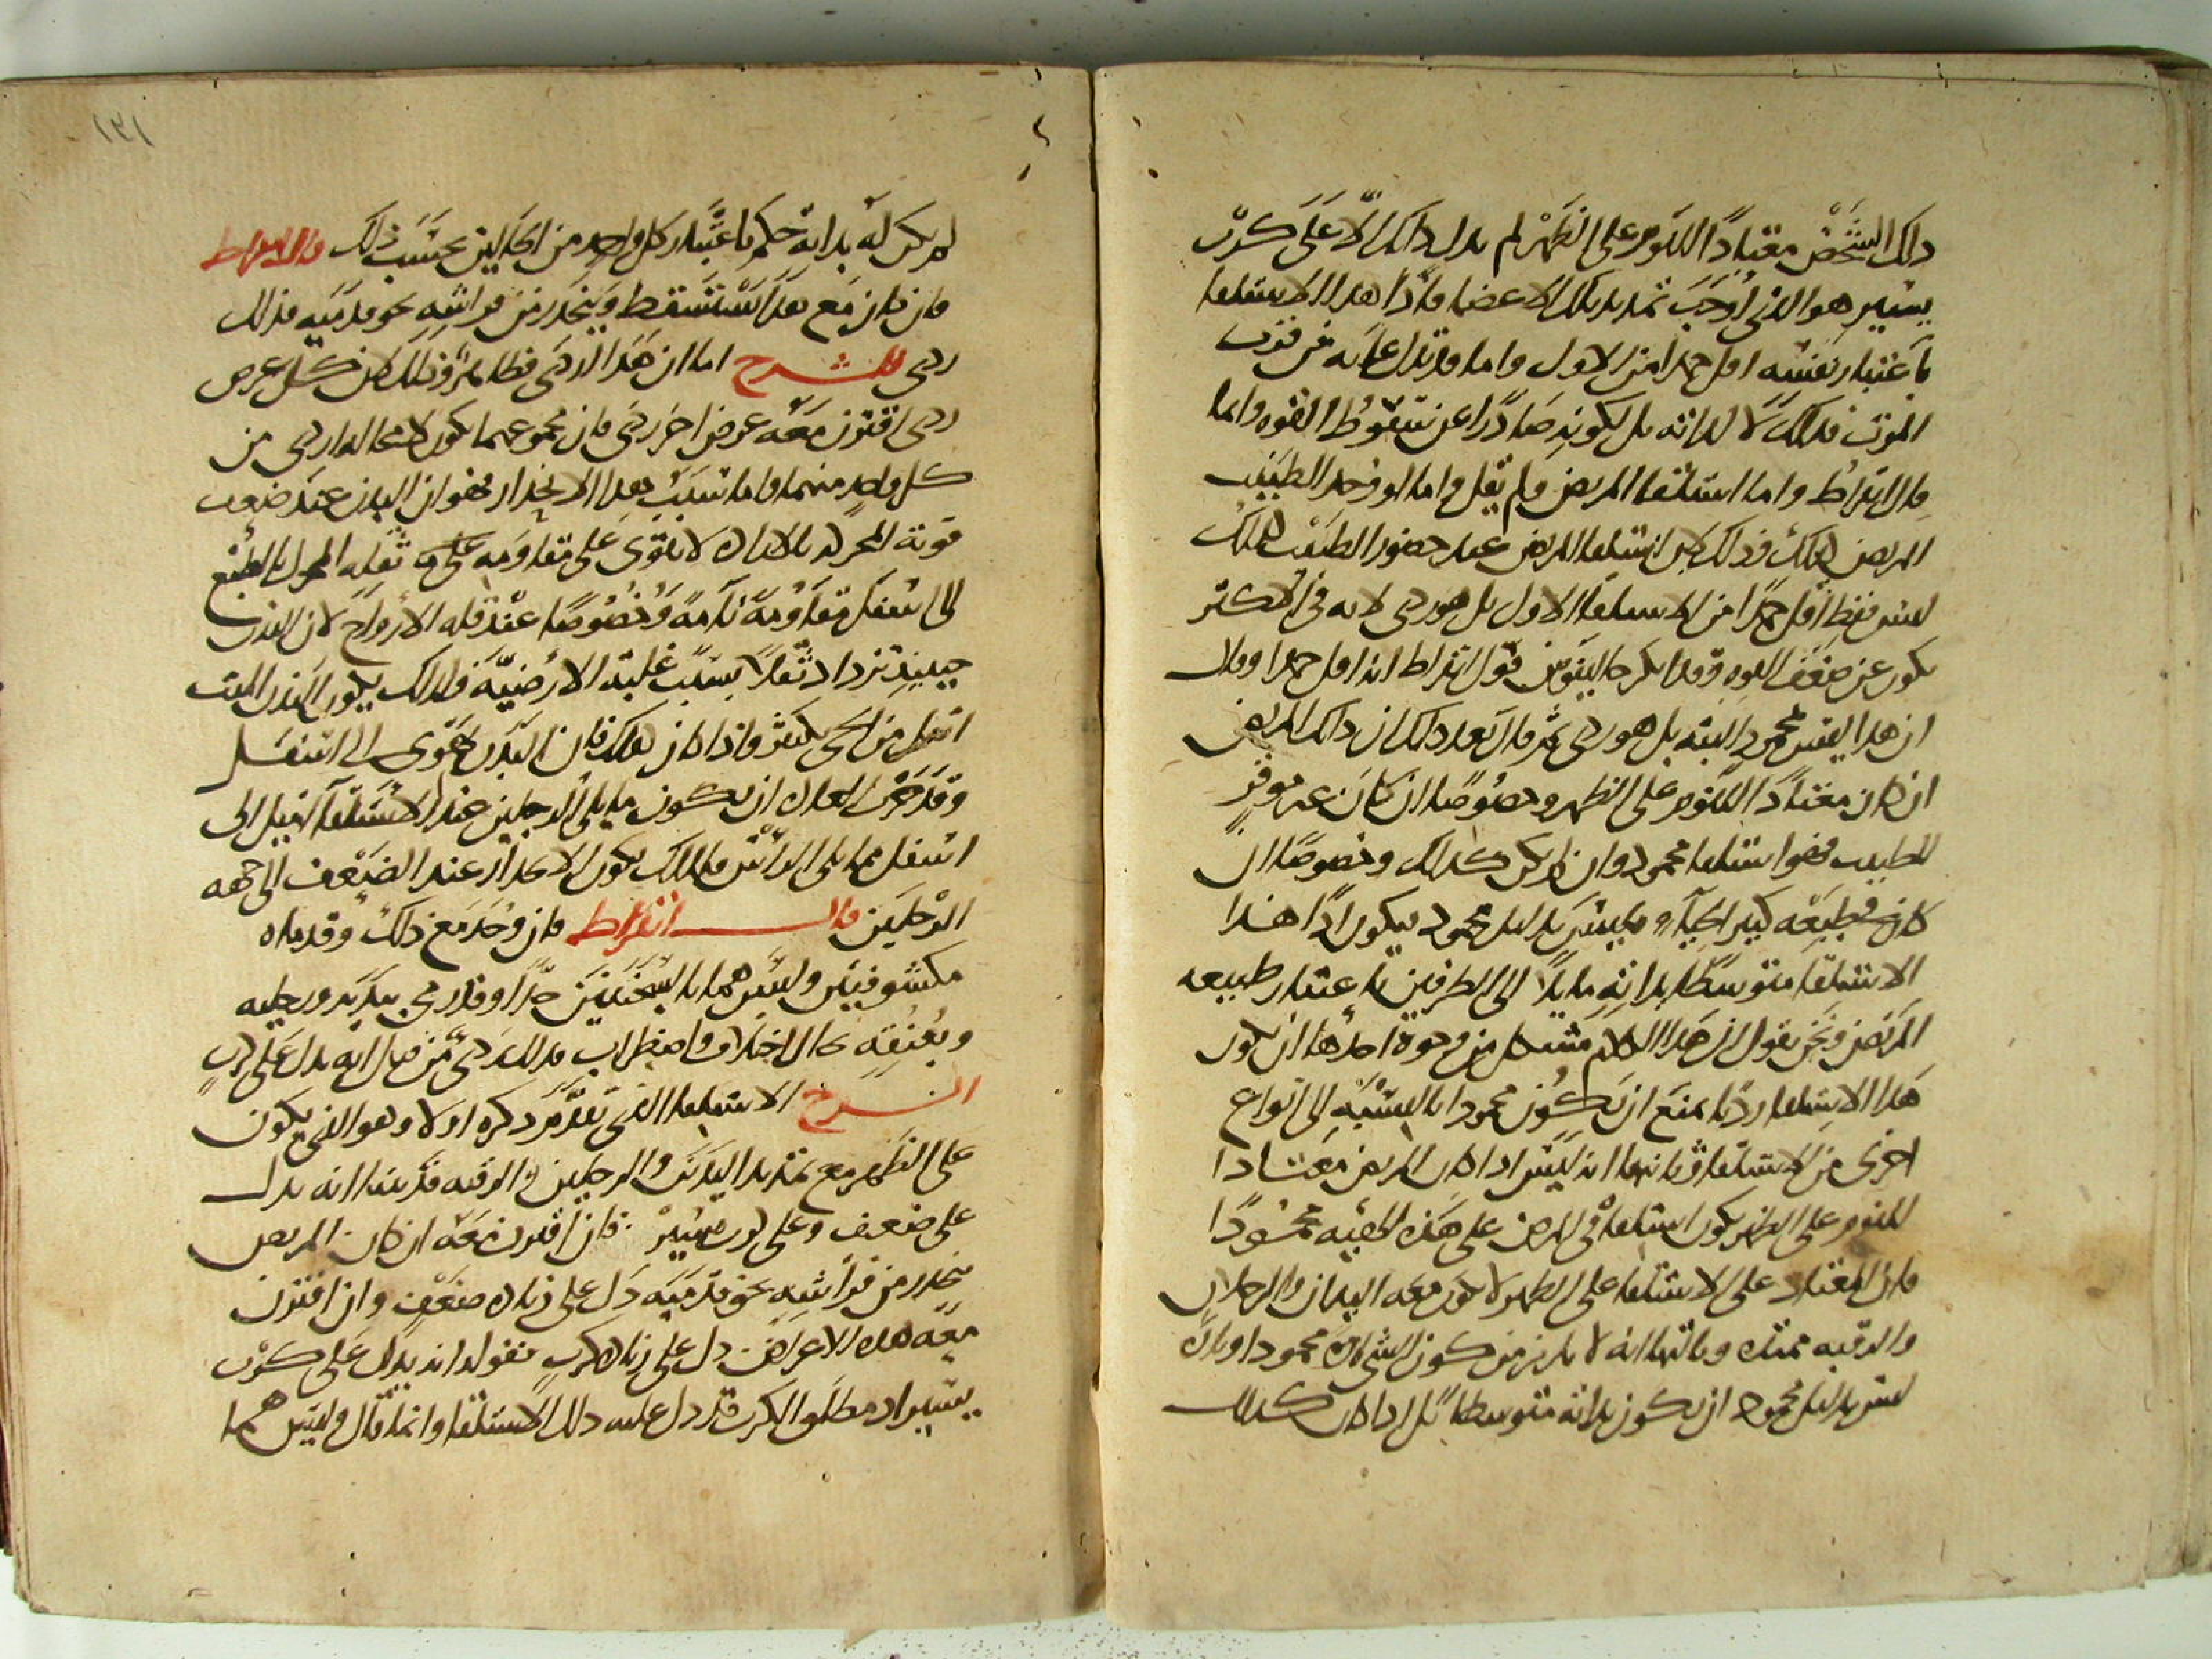 ذلك الشخص معتادا للنوم على الظهر لم يدل ذلك الا على كرب
يسير هو الذي اوجب تمديد تلك الاعضا فاذا هذا الاستلقا
باعتبار نفسه اقل حمدا من الاول واما قد يدل على انه عن قرب
الموت فذلك لا لذاته بل لكونه صادرا عن سقوط القوه وانما
قال ابقراط واما استلقا المريض ولم يقل واما لو وجد الطبيب
المريض كذلك وذلك لان استلقا المريض عند حضور الطبيب كذلك
ليس فقط اقل حمدا من الاستلقا الاول بل هو ردي لانه في الاكثر
يكون عن ضعف القوه وقد انكر جالينوس قول ابقراط انه اقل حمدا وقال
ان هذا ليس محمود البته بل هو ردي ثم قال بعد ذلك ان ذلك المريض
ان كان معتادا للنوم على الظهر وخصوصا ان كان غير موقر
للطبيب فهو استلقا محمود وان لم يكن كذلك وخصوصا ان
كان في طبعه كبير الحيا فليس بدليل محمود فيكون اذا هذا
الاستلقا متوسطا بذاته مايلا الى الطرفين باعتبار طبيعه
المريض ونحن نقول ان هذا الكلام مشكل من وجوه احدها ان كون
هذا الاستلقا رديا يمنع ان يكون محمودا بالنسبه الى انواع
اخرى من الاستلقا وثانيها انه ليس اذا كان المريض معتادا
للنوم على الظهر يكون استلقاه في المرض على هذه الهيه محمودا
فان المعتاد على الاستلقا على الظهر لا يكون معه اليدان والرجلان
والرقبه ممتده وثالثها انه لا يلزم من كون الشي تارة محمودا وتارة
ليس بدليل محمود ان يكون بذاته متوسطا بل اذا كان كذلك
١٣١
لم يكن له بذاته حكم باعتبار كل واحد من الحالين بحسب ذلك قال ابقراط
فان كان مع هذا يستسقط وينحدر من فراشه نحو قدميه فذلك
ردي الشرح اما ان هذا اردى فظاهر وذلك لان كل عرض
ردي اقترن معه عرض اخر ردي فان مجموعهما يكون لا محاله اردى من
كل واحد منهما واما سبب هذا الانحدار فهو ان البدن عند ضعف
قوته المحركه بالاراده لا يقوى على مقاومه ثقله المحرك بالطبع
الى اسفل مقاومة تامة وخصوصا عند قله الارواح لان البدن
حينيذ تزداد ثقلا بسبب غلبة الارضيه فلذلك يكون البدن الميت
اثقل من الحي بكثير واذا كان كذلك فان البدن يهوى الى اسفل
وقد جرت العاده ان يكون ما يلي الرجلين عند الاستلقا اميل الى
اسفل مما يلي الراس فلذلك يكون الانحدار عند الضعف الى جهه
الرجلين قال ابقراط فان وجد مع ذلك وقدماه
مكشوفتين وليس هما بالسخنتين جدا وقد رمى بيديه ورجليه
وبعنقه بحال اختلاف واضطراب فذلك ردي من قبل انه يدل على كرب
الشرح الاستلقا الذي تقدم ذكره اولا وهو الذي يكون
على الظهر مع تمديد اليدين والرجلين والرقبه قد بينا انه يدل
على ضعف وعلى كرب يسير فان اقترن معه ان كان المريض
ينحدر من فراشه نحو قدميه دل على زيادة ضعف وان اقترن
معه هذه الاعراض دل على زيادة كرب فقوله انه يدل على كرب
يشير اد مطلق الكرب قد دل عليه ذلك الاستلقا وانما قال وليس هما